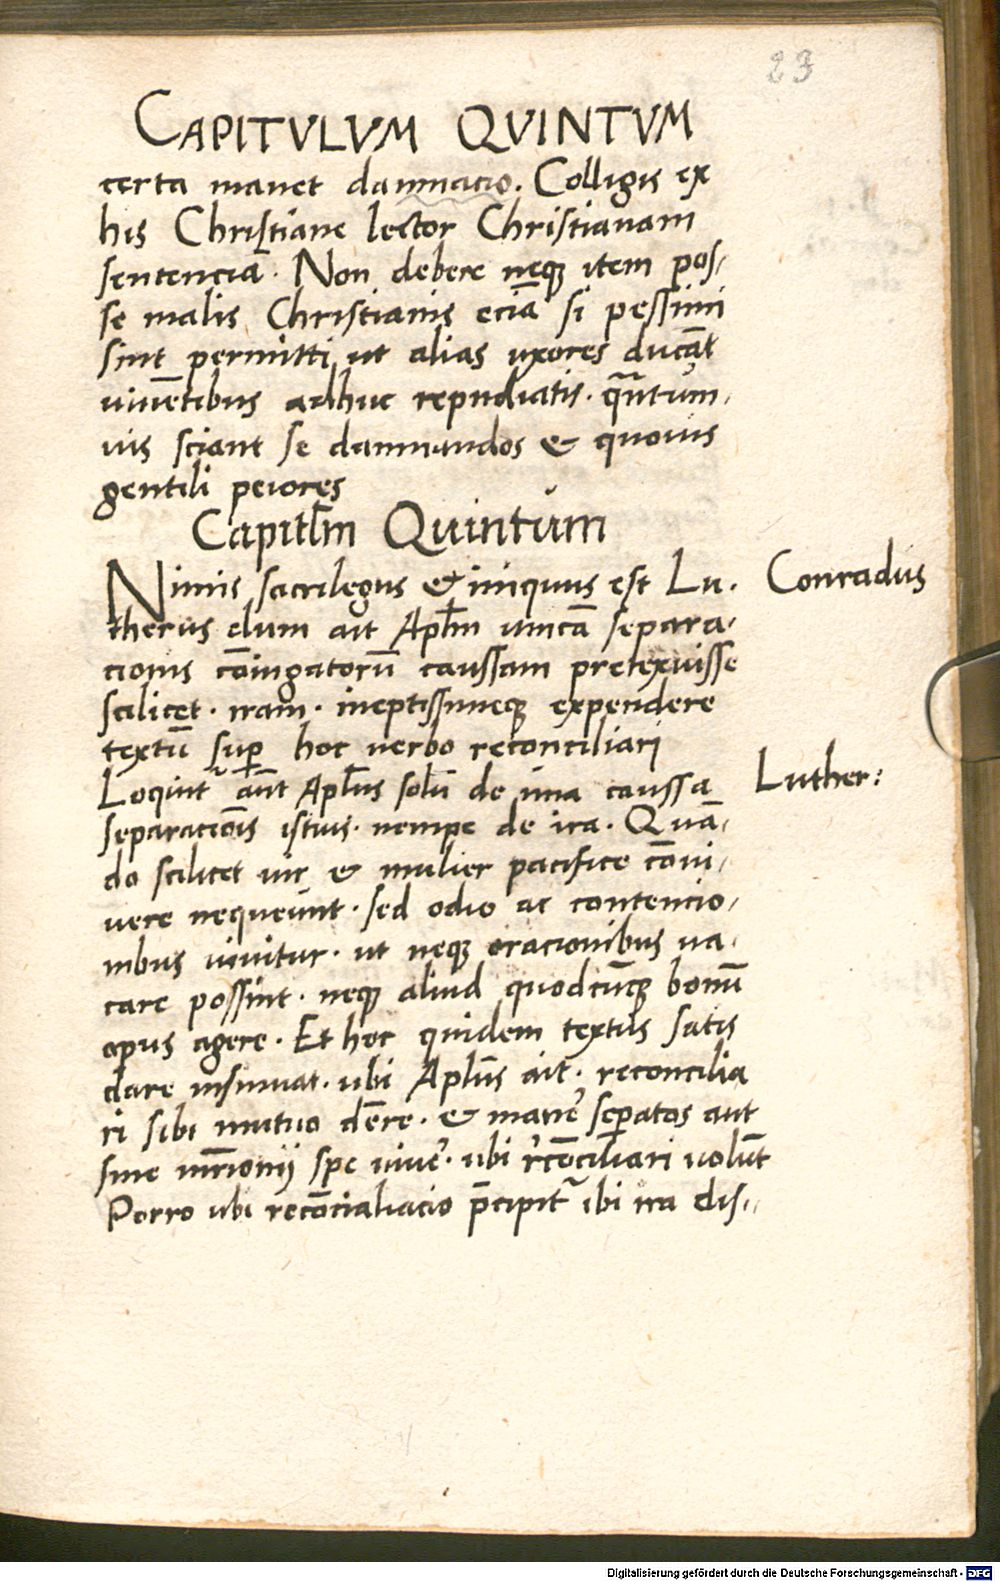 23
CAPITVLVM QVINTVM
certa manet damnacio. Colligis ex
his Christiane lector Christianam
sentenciā. Non debere neqꝫ item pos-
se malis Christianis eciā si pessimi
sint permitti ut alias uxores ducāt
uiuētibus adhuc repudiatis. qꝫntum-
uis sciant se damnandos & quouis
gentili peiores
Capitłm Quintum
Nimis sacrilegus & iniquus est Lu-
Conradus
therus dum ait Apłm unicā separa-
cionis cōiugatorū caussam pretexuisse
scilicet. iram. ineptissimeqꝫ expendere
textū suꝑ hoc uerbo reconciliari
Loquit᷑ aūt Apłus solū de una caussa
Luther:
separaciōis istius. nempe de ira. Quā-
do scilicet uir & mulier pacifice cōui-
uere nequeunt. sed odio ac contencio-
nibus uiuitur. ut neqꝫ oracionibus ua-
care possint. neqꝫ aliud quodcūqꝫ bonū
opus agere. Et hoc quidem textus satis
clare insinuat. ubi Apłus ait. reconcilia
ri sibi mutuo dēre. & manē seꝑatos aut
sine mr̄ionij spe uiuē. ubi r̄cōciliari uolūt
Porro ubi recōcialiacio p̄cipit᷑ ibi ira dis-
Digitalisierung gefördert durch die Deutsche Forschungsgemeinschaft - DFG